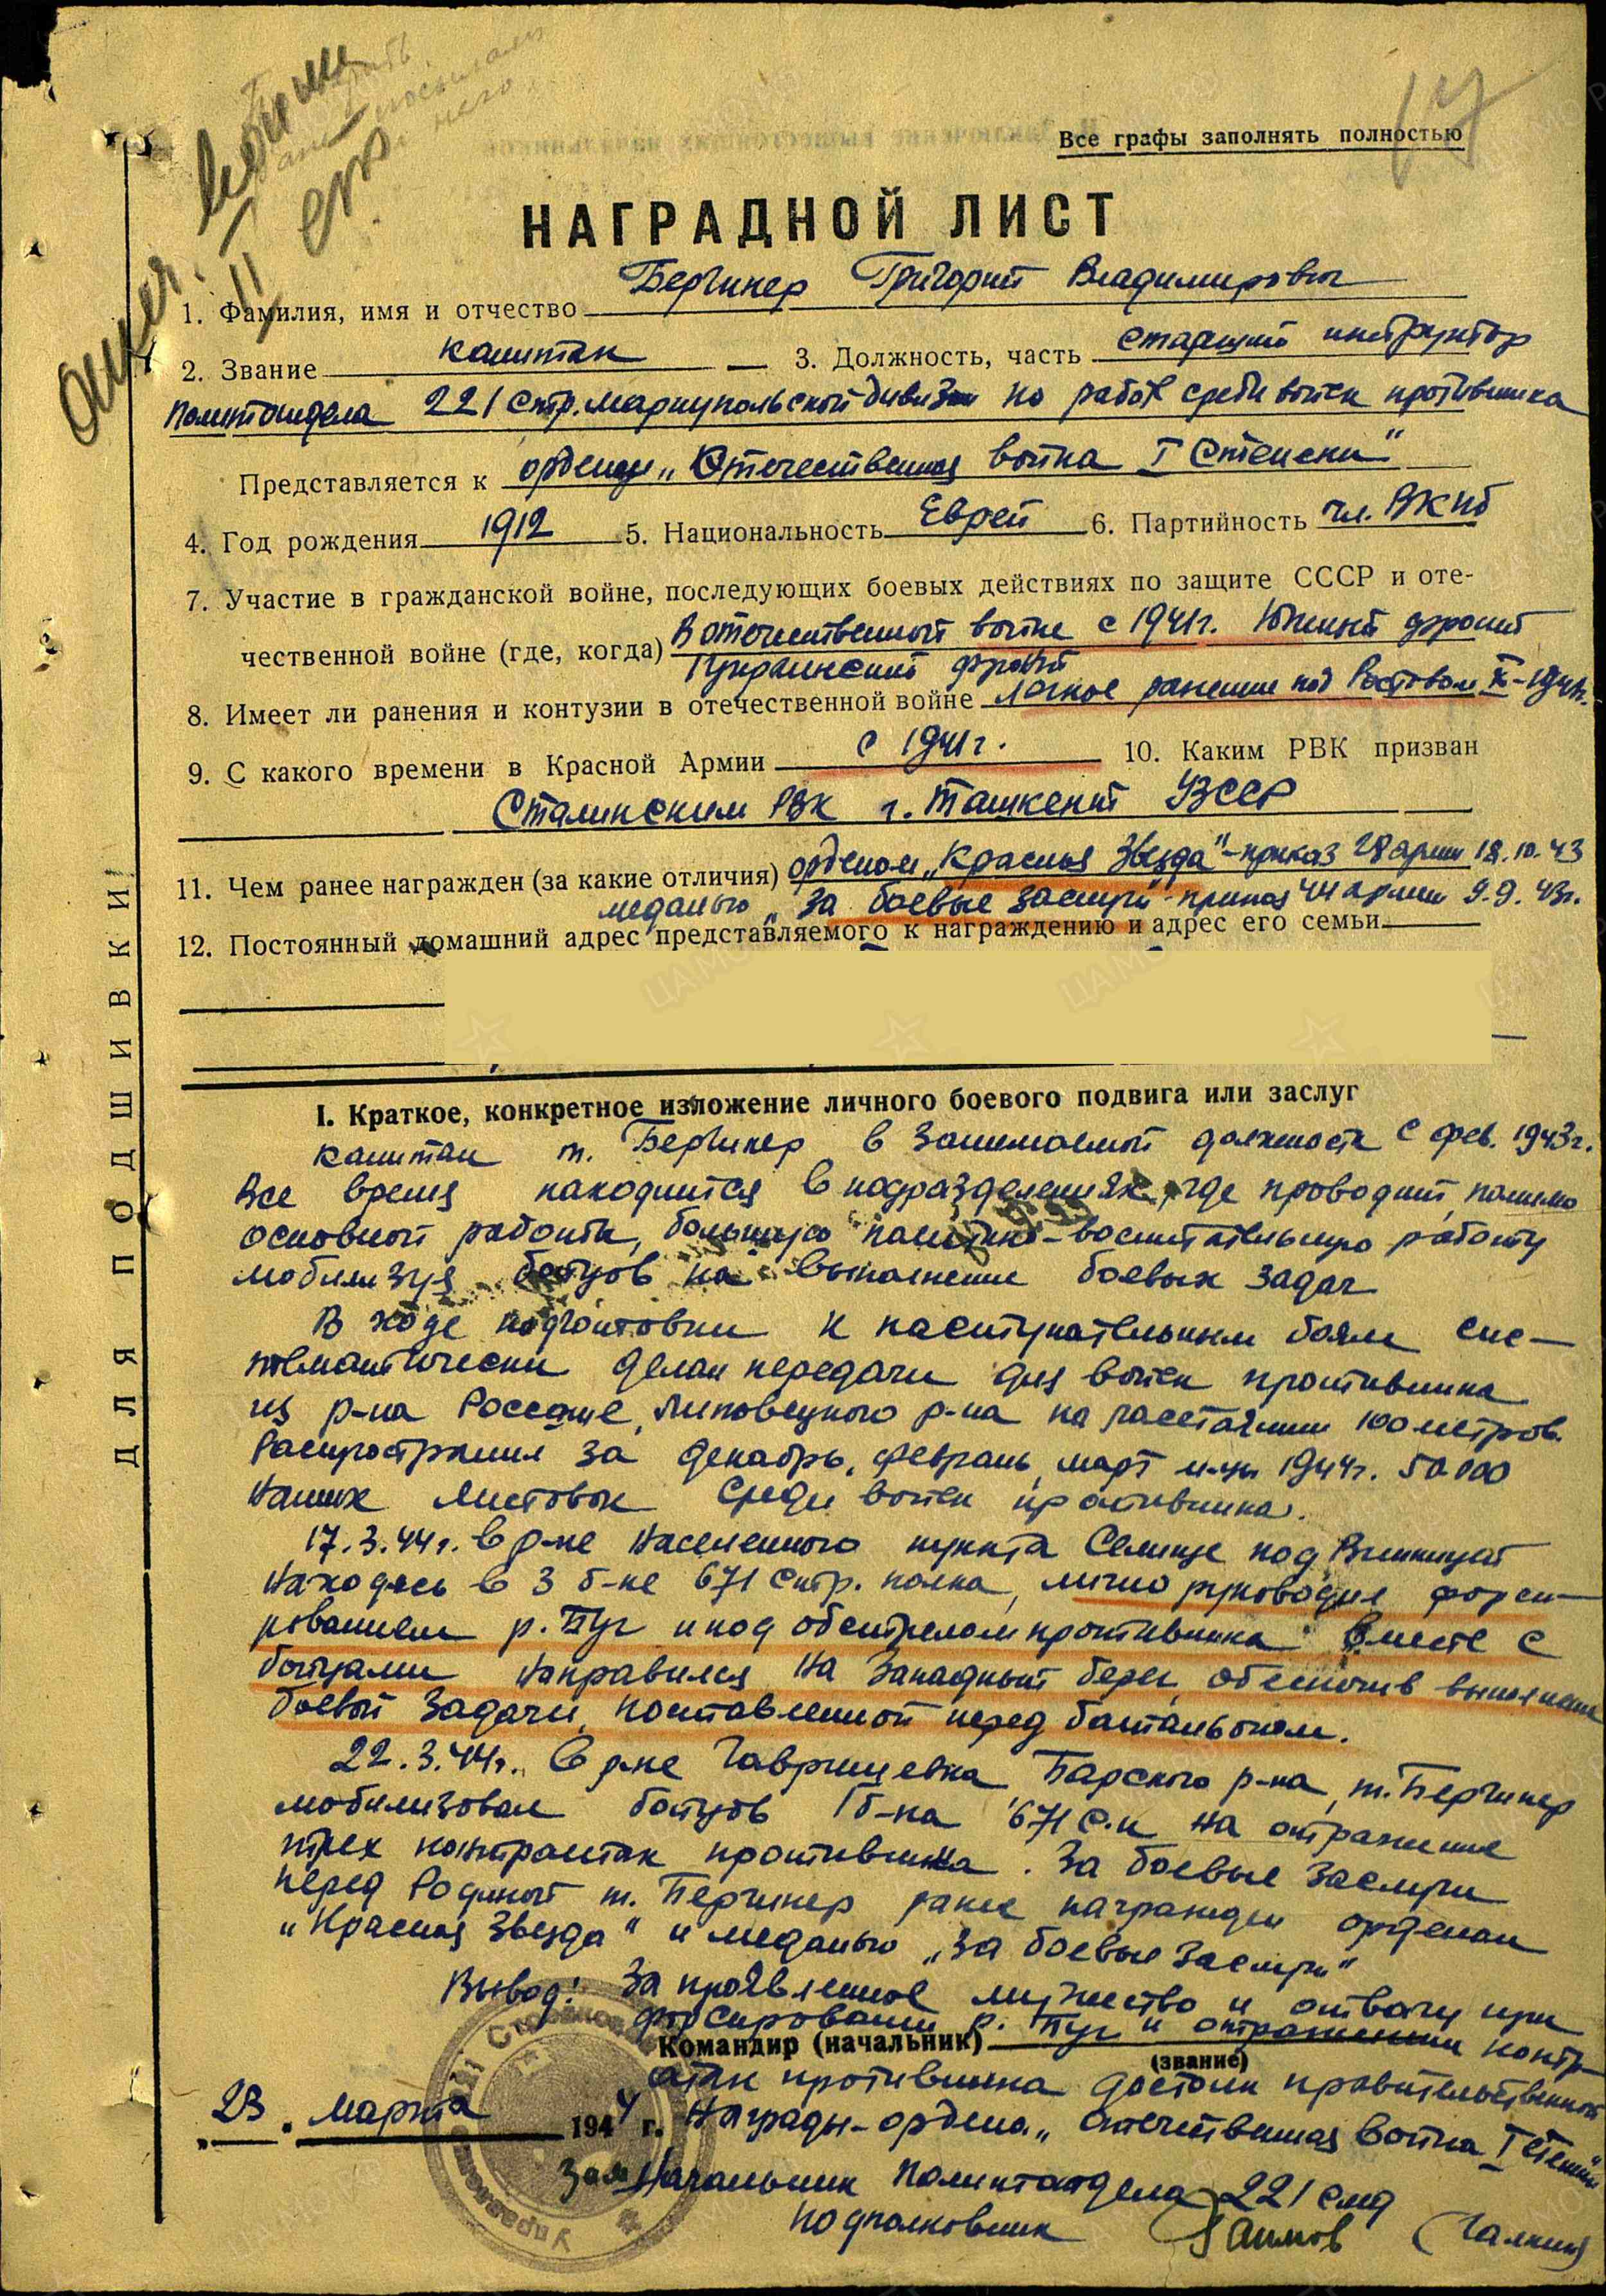 Все графы заполнять полностью
НАГРАДНОЙ ЛИСТ
1. Фамилия, имя и отчество Берчинер Григорий Владимирович
2. Звание капитан 3. Должность, часть старший инструктор
политотдела 221 стр. Мариупольской дивизии по работе среди войск противника
Представляется к ордену „Отечественная война I степени"
4. Год рождения 1912 5. Национальность Еврей 6. Партийность чл. ВКПб
7. Участие в гражданской войне, последующих боевых действиях по защите СССР и оте-
чественной войне (где, когда) В отечественной войне с 1941г. Южный фронт
1 Украинский фронт
8. Имеет ли ранения и контузии в отечественной войне легкое ранение под Ростовом
9. С какого времени в Красной Армии с 1941г. 10. Каким РВК призван
Сталинским РВК г. Ташкент УзССР
11. Чем ранее награжден (за какие отличия) орденом „Красная Звезда"-приказ 28 армии 18.10.43
медалью „За боевые заслуги" приказ 44 армии 9.9.43г.
12. Постоянный домашний адрес представляемого к награждению и адрес его семьи
ДЛЯ ПОДШИВКИ
I. Краткое, конкретное изложение личного боевого подвига или заслуг
Капитан т. Берчинер в занимаемой должности с фев. 1943г.
Все время находится в подразделениях, где проводит, помимо
основной работы, большую политико-воспитательную работу
мобилизуя бойцов на выполнение боевых задач
В ходе подготовки к наступательным боям сис-
тематически делал передачи для войск противника
из р-на Россоше, Липовецкого р-на на расстоянии 100 метров.
Распространил за декабрь, февраль, март м-цы 1944г. 50000
наших листовок среди войск противника.
17.3.44г. в р-не населенного пункта Селище под Винницей
находясь в 3 б-не 671 стр. полка, лично руководил форси-
рованием р. Буг и под обстрелом противника вместе с
бойцами направился на западный берег, обеспечив выполнение
боевой задачи, поставленной перед батальоном.
22.3.44г. в р-не Гавришевка, Барского р-на, т. Берчинер
мобилизовал бойцов 1 б-на 671 с.п. на отражение
трех контратак противника. За боевые заслуги
перед Родиной т. Берчинер ранее награжден орденом
„Красная Звезда" и медалью „За боевые заслуги"
Вывод: За проявленное мужество и отвагу при
форсировании р. Буг и отражении контр-
Командир (начальник)
(звание)
атак противника достоин правительственной
23. марта 1944 г. награды-ордена „Отечественная война I степени"
Зам Начальник Политотдела 221 смд
подполковник (Галкин)